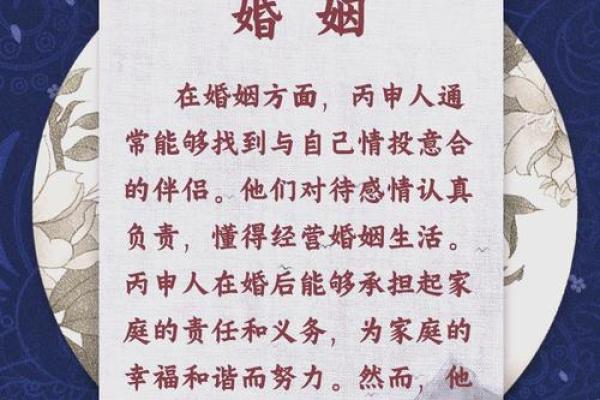 婚姻
在婚姻方面，丙申人通
常能够找到与自己情投意合
的伴侣。他们对待感情认真
负责，懂得经营婚姻生活。
丙申人在婚后能够承担起家
庭的责任和义务，为家庭的
幸福和谐而努力。然而，他